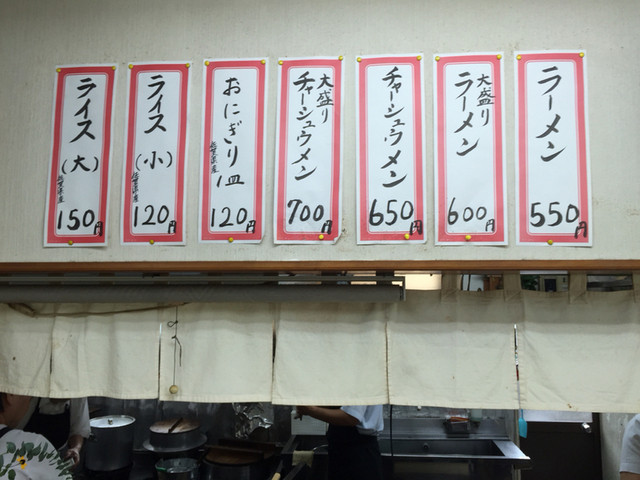 ラーメン
550円
大盛り
ラーメン
600円
チャーシュウメン
650円
大盛り
チャーシュウメン
700円
おにぎり一皿
佐賀県産
120円
ライス(小)
佐賀県産
120円
ライス(大)
佐賀県産
150円